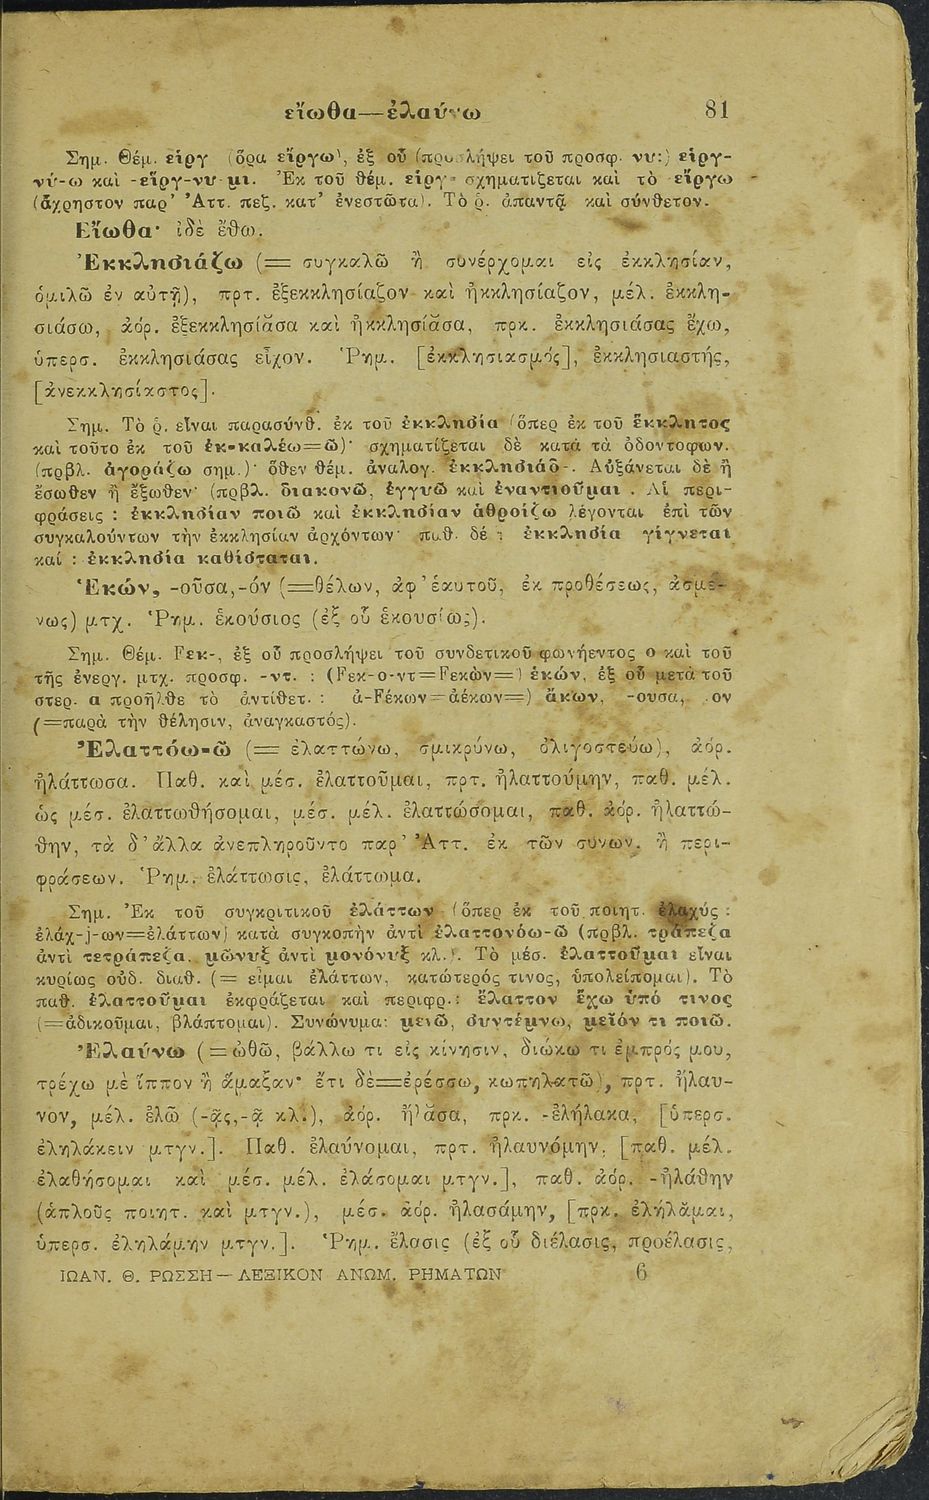 εἴωθα—ἐλαύνω 81
Σημ. Θέμ. εἱργ (ὅρα εἵργω), ἐξ οὗ (προσλήψει τοῦ προσφ. νυ:) εἱργ-
νύ-ω καὶ -εἵργ-νυ-μι. Ἐκ τοῦ θέμ. εἱργ- σχηματίζεται καὶ τὸ εἵργω
(ἄχρηστον παρ' Ἀττ. πεζ. κατ' ἐνεστῶτα). Τὸ ῥ. ἀπαντᾷ καὶ σύνθετον.
Εἴωθα· ἰδὲ ἔθω.
Ἐκκλησιάζω (= συγκαλῶ ἢ συνέρχομαι εἰς ἐκκλησίαν,
ὁμιλῶ ἐν αὐτῇ), πρτ. ἐξεκκλησίαζον καὶ ἠκκλησίαζον, μέλ. ἐκκλη-
σιάσω, ἀόρ. ἐξεκκλησίᾰσα καὶ ἠκκλησίᾰσα, πρκ. ἐκκλησιάσας ἔχω,
ὑπερσ. ἐκκλησιάσας εἶχον. Ῥημ. [ἐκκλησιασμός], ἐκκλησιαστής,
[ἀνεκκλησίαστος].
Σημ. Τὸ ῥ. εἶναι παρασύνθ. ἐκ τοῦ ἐκκλησία (ὅπερ ἐκ τοῦ ἔκκλητος
καὶ τοῦτο ἐκ τοῦ ἐκ-καλέω=ῶ)· σχηματίζεται δὲ κατὰ τὰ ὀδοντοφων.
(πρβλ. ἀγοράζω σημ.)· ὅθεν θέμ. ἀναλογ. ἐκκλησιάδ-. Αὐξάνεται δὲ ἢ
ἔσωθεν ἢ ἔξωθεν· (πρβλ. διακονῶ, ἐγγυῶ καὶ ἐναντιοῦμαι). Αἱ περι-
φράσεις : ἐκκλησίαν ποιῶ καὶ ἐκκλησίαν ἀθροίζω λέγονται ἐπὶ τῶν
συγκαλούντων τὴν ἐκκλησίαν ἀρχόντων· παθ. δέ : ἐκκλησία γίγνεται
καί : ἐκκλησία καθίσταται.
Ἑκών, -οῦσα,-όν (=θέλων, ἀφ' ἑαυτοῦ, ἐκ προθέσεως, ἀσμέ-
νως) μτχ. Ῥημ. ἑκούσιος (ἐξ οὗ ἑκουσίως).
Σημ. Θέμ. Fεκ-, ἐξ οὗ προσλήψει τοῦ συνδετικοῦ φωνήεντος ο καὶ τοῦ
τῆς ἐνεργ. μτχ. προσφ. -ντ. : (Fεκ-ο-ντ=Fεκὼν=) ἑκών, ἐξ οὗ μετὰ τοῦ
στερ. α προῆλθε τὸ ἀντίθετ. : ἀ-Fέκων=ἀέκων=) ἄκων, -ουσα, -ον
(=παρὰ τὴν θέλησιν, ἀναγκαστός).
Ἐλαττόω-ῶ (= ἐλαττώνω, σμικρύνω, ὀλιγοστεύω), ἀόρ.
ἠλάττωσα. Παθ. καὶ μέσ. ἐλαττοῦμαι, πρτ. ἠλαττούμην, παθ. μέλ.
ὡς μέσ. ἐλαττωθήσομαι, μέσ. μέλ. ἐλαττώσομαι, παθ. ἀόρ. ἠλαττώ-
θην, τὰ δ' ἄλλα ἀνεπληροῦντο παρ' Ἀττ. ἐκ τῶν συνων. ἢ περι-
φράσεων. Ῥημ. ἐλάττωσις, ἐλάττωμα.
Σημ. Ἐκ τοῦ συγκριτικοῦ ἐλάττων (ὅπερ ἐκ τοῦ ποιητ. ἐλαχύς :
ἐλάχ-j-ων=ἐλάττων) κατὰ συγκοπὴν ἀντὶ ἐλαττονόω-ῶ (πρβλ. τράπεζα
ἀντὶ τετράπεζα, μῶνυξ ἀντὶ μονόνυξ κλ.). Τὸ μέσ. ἐλαττοῦμαι εἶναι
κυρίως οὐδ. διαθ. (= εἶμαι ἐλάττων, κατώτερός τινος, ὑπολείπομαι). Τὸ
παθ. ἐλαττοῦμαι ἐκφράζεται καὶ περιφρ.: ἔλαττον ἔχω ὑπό τινος
(=ἀδικοῦμαι, βλάπτομαι). Συνώνυμα: μειῶ, συντέμνω, μεῖόν τι ποιῶ.
Ἐλαύνω (=ὠθῶ, βάλλω τι εἰς κίνησιν, διώκω τι ἐμπρός μου,
τρέχω μὲ ἵππον ἢ ἅμαξαν· ἔτι δὲ=ἐρέσσω, κωπηλατῶ), πρτ. ἤλαυ-
νον, μέλ. ἐλῶ (-ᾷς,-ᾷ κλ.), ἀόρ. ἤλᾰσα, πρκ. -ἐλήλακα, [ὑπερσ.
ἐληλάκειν μτγν.]. Παθ. ἐλαύνομαι, πρτ. ἠλαυνόμην, [παθ. μέλ.
ἐλαθήσομαι καὶ μέσ. μέλ. ἐλάσομαι μτγν.], παθ. ἀόρ. -ἠλάθην
(ἁπλοῦς ποιητ. καὶ μτγν.), μέσ. ἀόρ. ἠλασάμην, [πρκ. ἐλήλᾰμαι,
ὑπερσ. ἐληλάμην μτγν.]. Ῥημ. ἔλασις (ἐξ οὗ διέλασις, προέλασις,
ΙΩΑΝ. Θ. ΡΩΣΣΗ—ΛΕΞΙΚΟΝ ΑΝΩΜ. ΡΗΜΑΤΩΝ 6